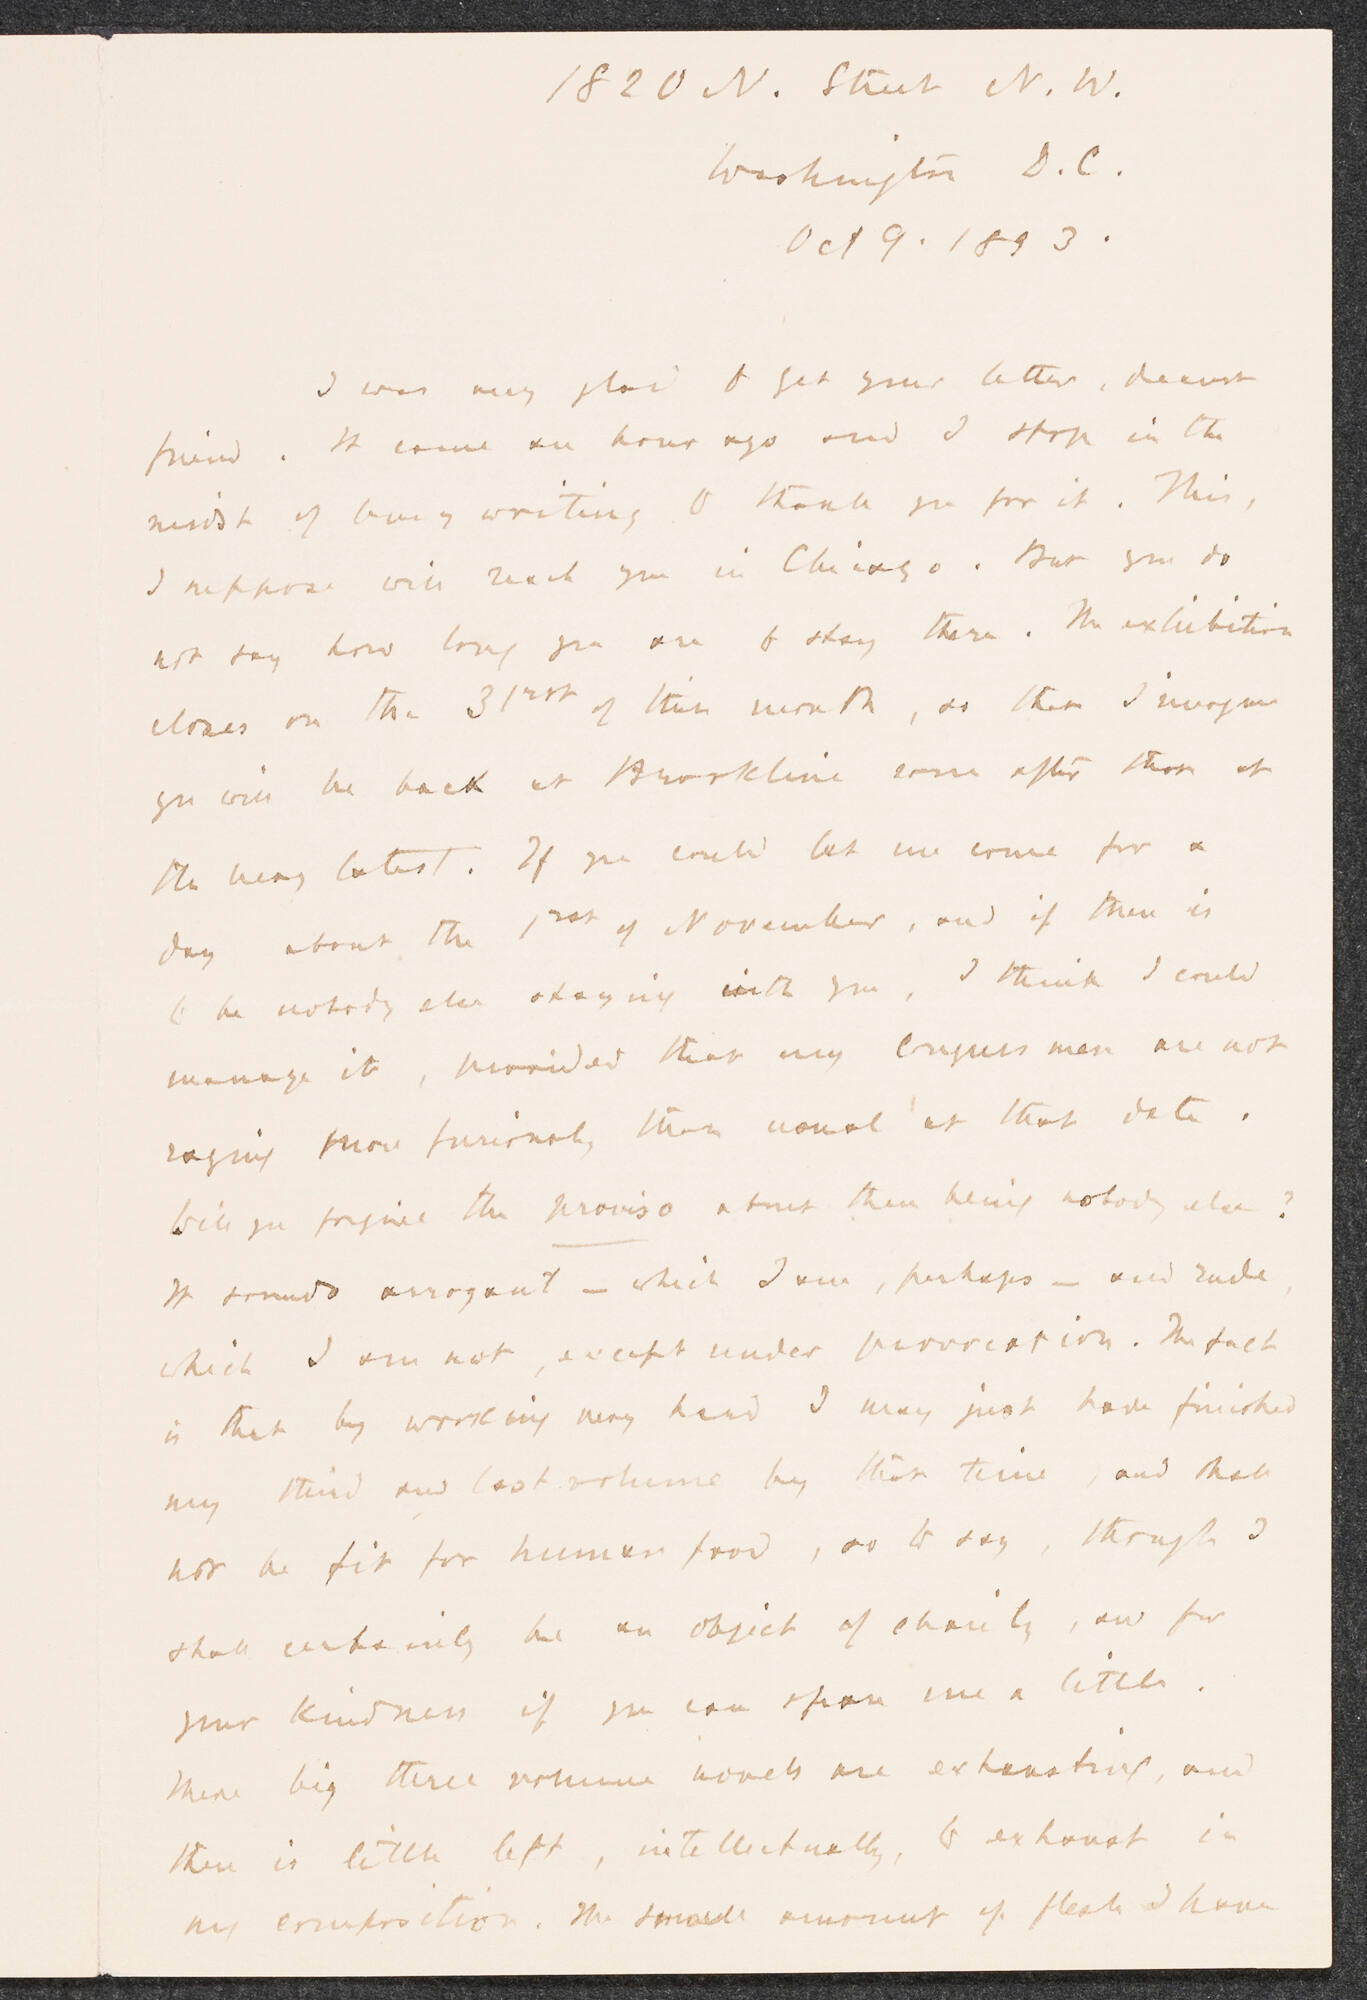 1820 N. Street N.W.
Washington D.C.
Oct 9. 1893.
I was very glad to get your letter, dearest
friend. It came an hour ago and I stop in the
midst of busy writing to thank you for it. This,
I suppose will reach you in Chicago. But you do
not say how long you are to stay there. The exhibition
closes on the 31rst of this month, so that I imagine
you will be back at Brookline soon after that at
the very latest. If you could let me come for a
day about the 1rst of November, and if there is
to be nobody else staying with you, I think I could
manage it, provided that my Congressmen are not
raging more furiously than usual at that date.
Will you forgive the proviso about there being nobody else?
It sounds arrogant – which I am, perhaps – and rude,
which I am not, except under provocation. The fact
is that by working very hard I may just have finished
my third and last volume by that time, and shall
not be fit for human food, so to say, though I
shall certainly be an object of charity, and for
your kindness if you can spare me a little.
These big three volume novels are exhausting, and
there is little left, intellectually, to exhaust in
my composition. The small amount of flesh I have